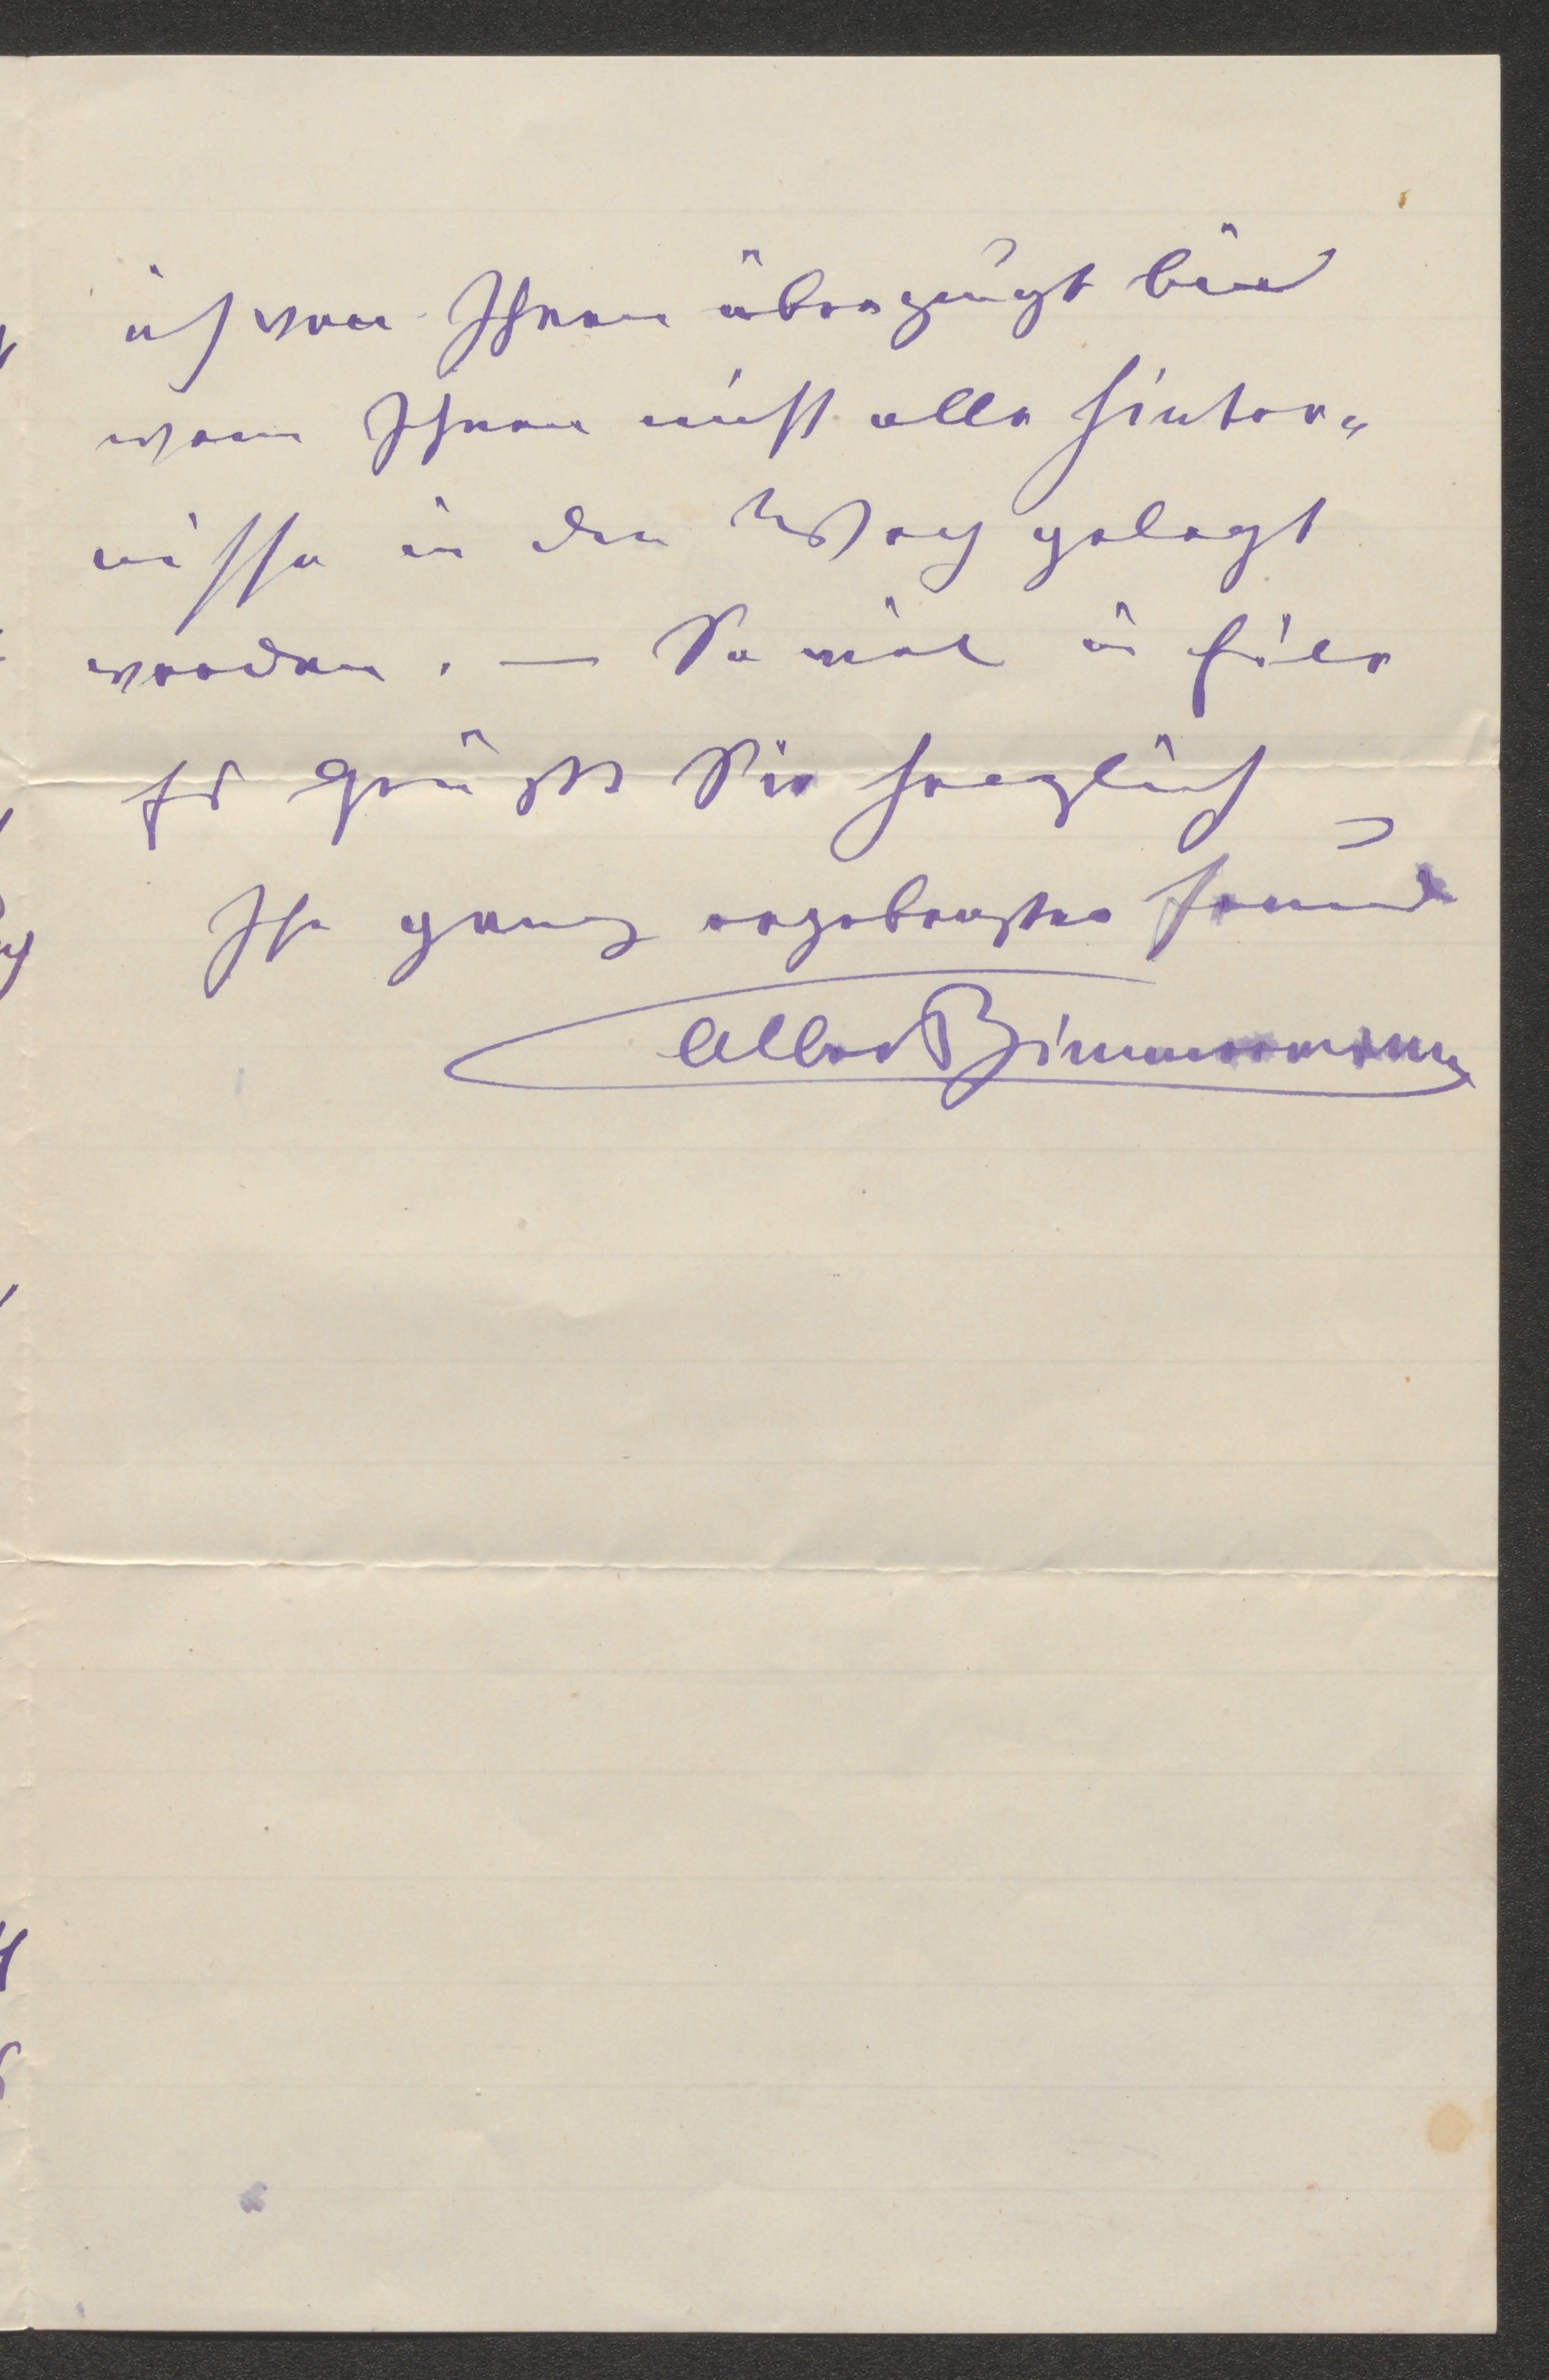 ich von Ihnen überzeugt bin
wenn Ihnen nicht alle Hinter„
nisse in den Weg gelegt
werden. — So viel in Eile
Es grüßt Sie herzlich
Ihr ganz ergebenster Freund
Albert Zimmermann